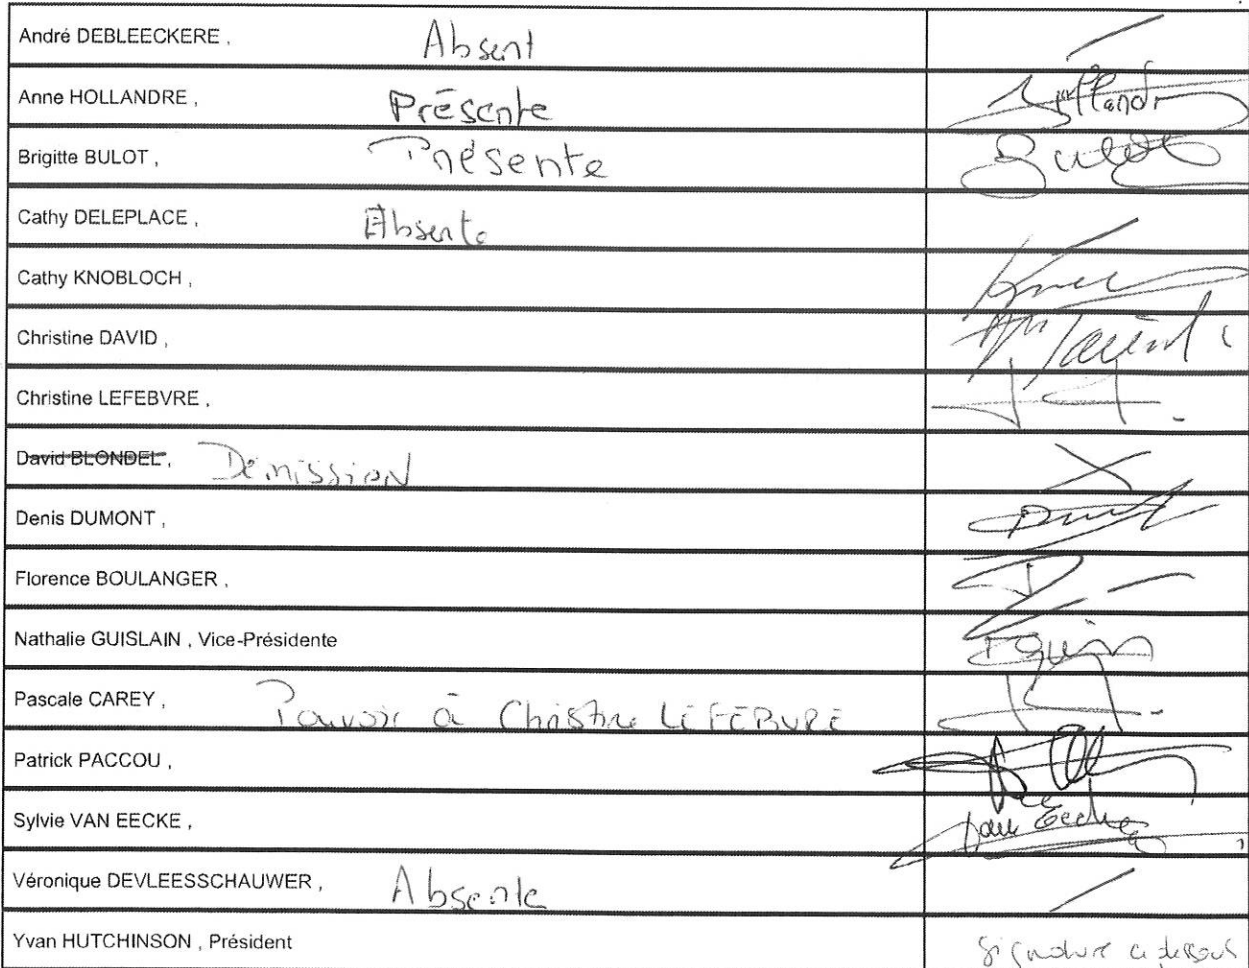 André DEBLEECKERE , Absent
Anne HOLLANDRE , Présente
Brigitte BULOT , Présente Bulot
Cathy DELEPLACE , Absente
Cathy KNOBLOCH ,
Christine DAVID , David
Christine LEFEBVRE ,
David BLONDEL , Démission
Denis DUMONT ,
Florence BOULANGER ,
Nathalie GUISLAIN , Vice-Présidente
Pascale CAREY , Pouvoir à Christine LEFEBVRE
Patrick PACCOU ,
Sylvie VAN EECKE , Van Eecke
Véronique DEVLEESSCHAUWER , Absente
Yvan HUTCHINSON , Président Signature ci dessous